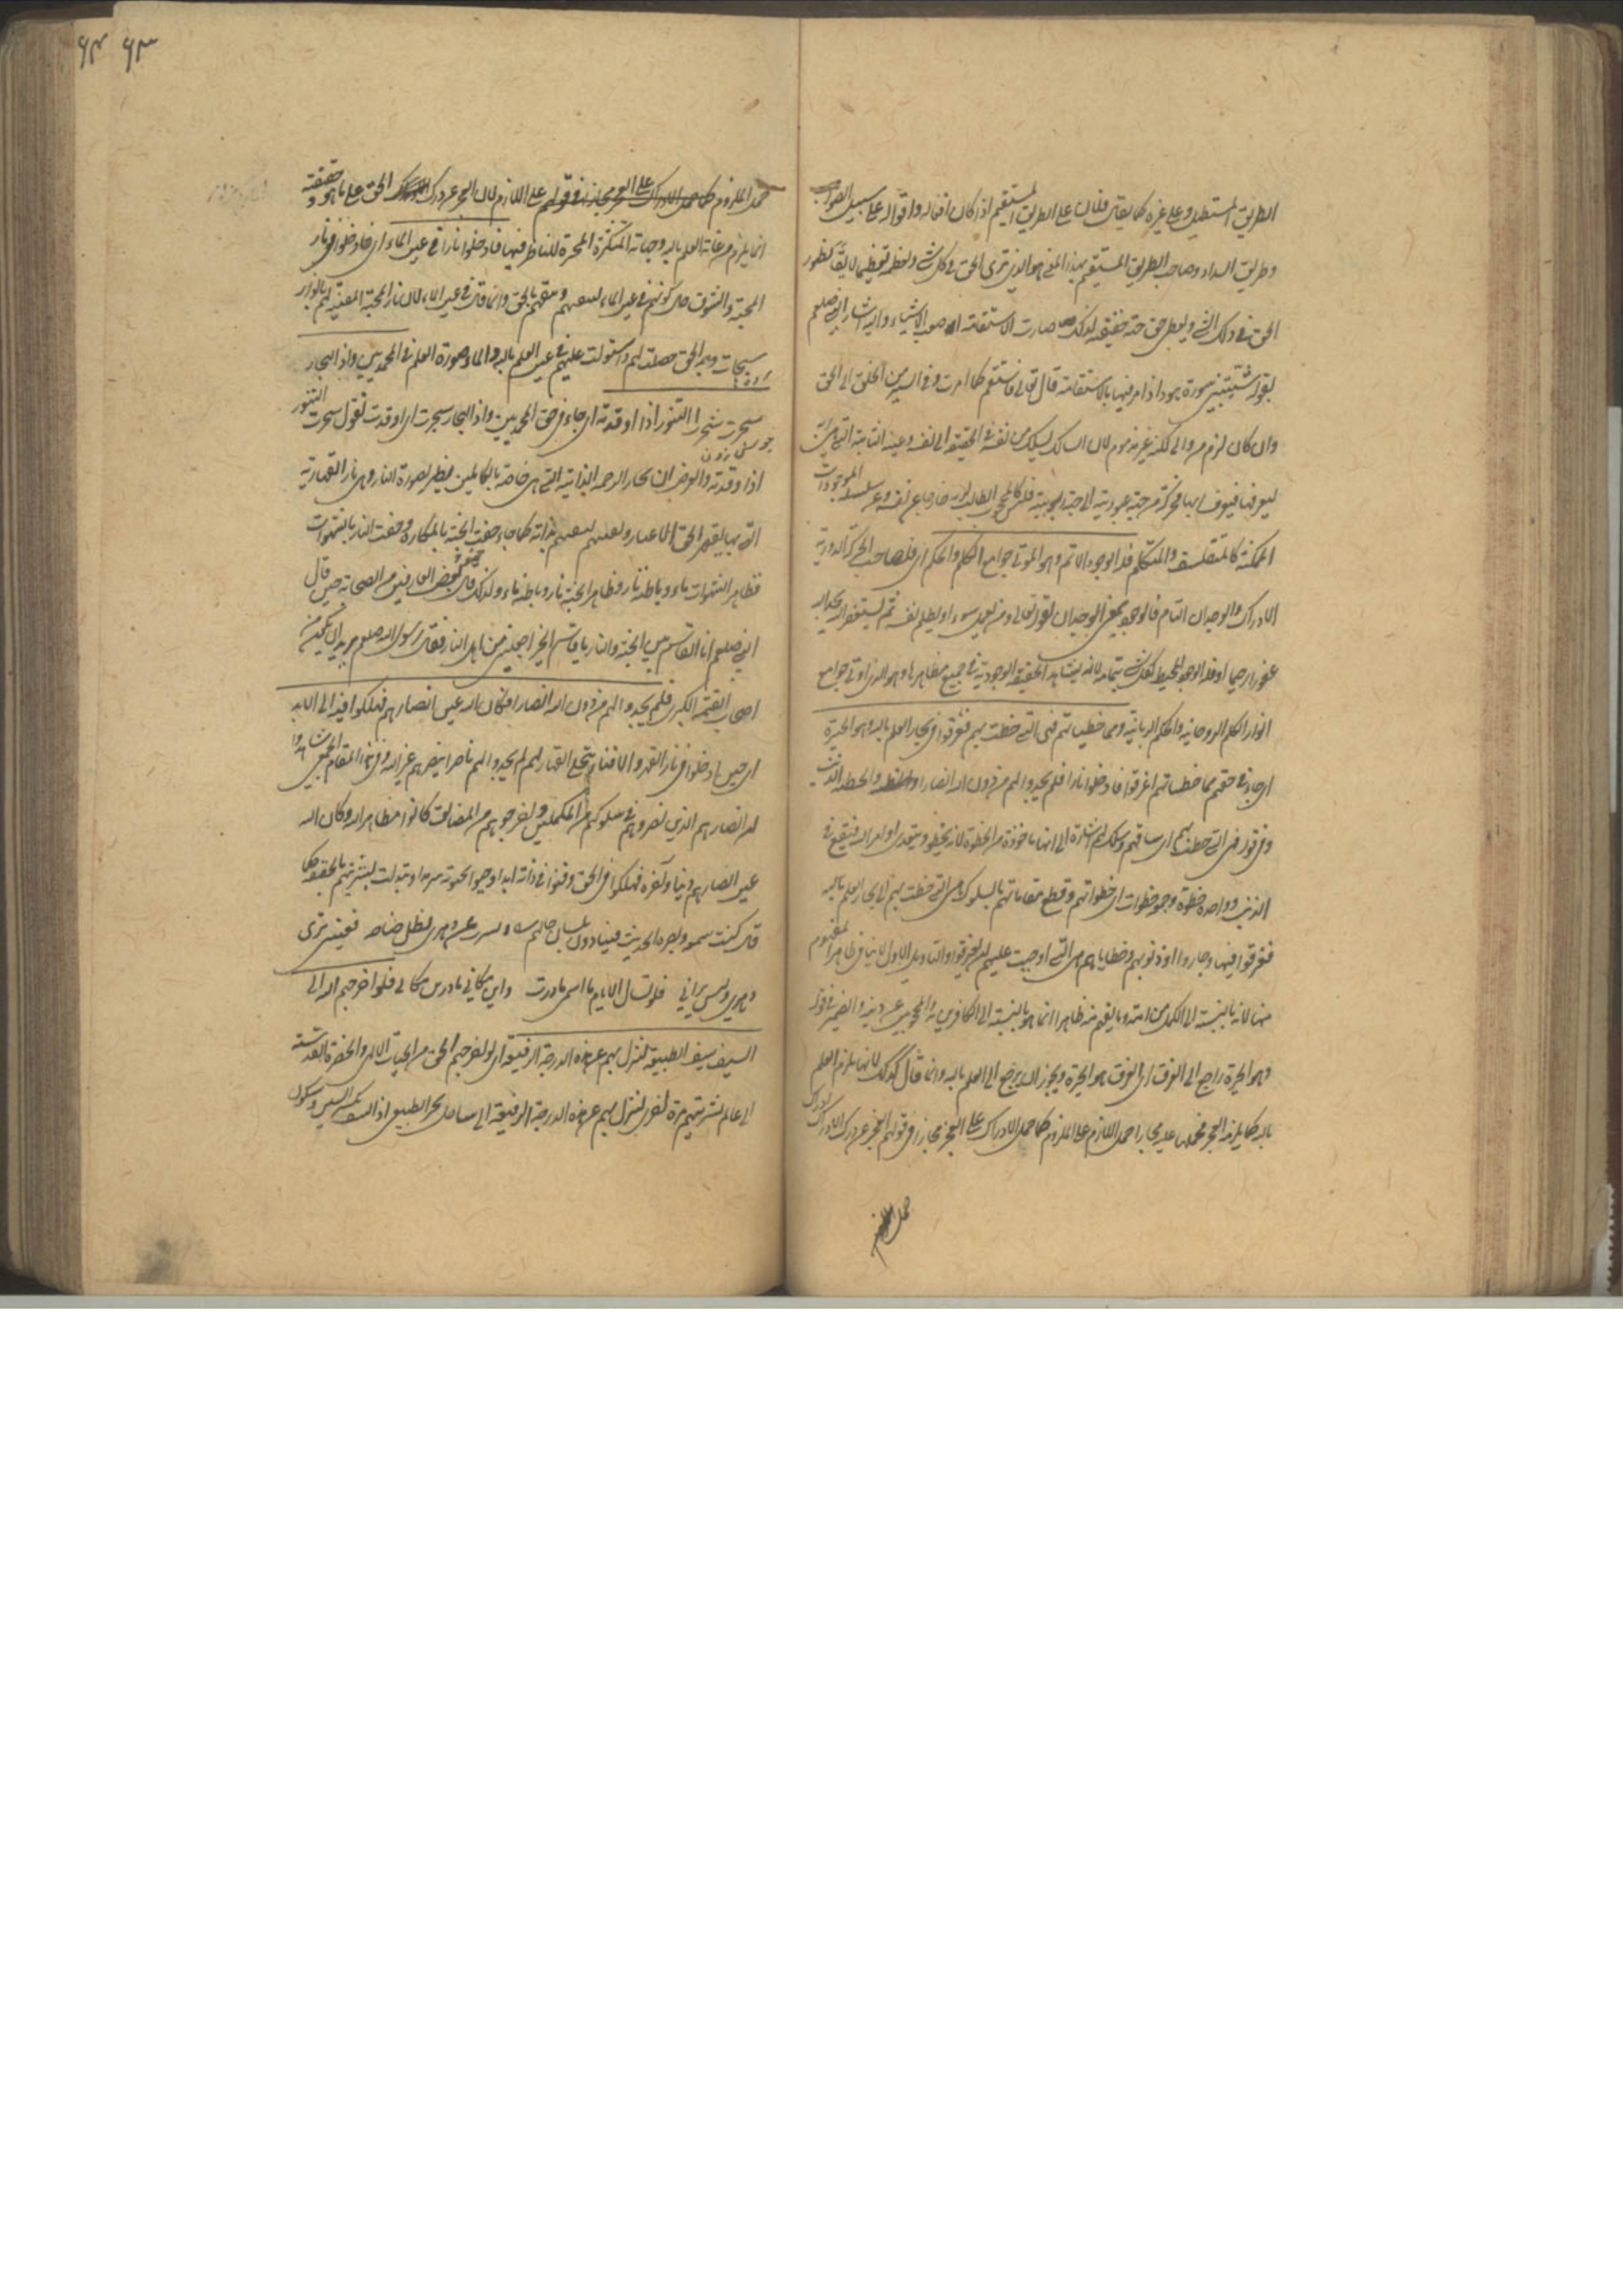 الطريق المستطيل وعلى غيره كما يقال فلان على الطريق المستقيم اذا كان افعاله واقواله على سبيل الصواب
وطريق السداد وصاحب الطريق المستقيم بهذا المعنى هو الذي يرى الحق في كل شيء ويعظمه تعظيما لايقا لظهور
الحق في ذلك الشيء ويعطى حق حقيقته لذلك صارت الاستقامة اصعب الاشياء واليه اشار النبي صلعم
بقوله شيبتني سورة هود اذ امر فيها بالاستقامة قال تعالى فاستقم كما امرت وفي السير من الخلق الى الحق
وان كان لزم من والى لكنه غير مذموم لان السالك يسلك من نفسه في الحقيقة الى نفسه وعينه الثابتة التي هي ربه
ليعرفها فيعرف ربه بها فحركته من جهة عبوديته الى جهة ربوبيته فليس كالمحجوب الطالب لربه خارجا عن نفسه وعن سلسلة الموجودات
الممكنة كالمتفلسف والمتكلم فله الوجود الاتم وهو المؤتى جوامع الكلم والحكم اى فلصاحب الحركة الدورية
الادراك والوجدان التام فالوجود بمعنى الوجدان لقوله تعالى ومن يعمل سوء او يظلم نفسه ثم يستغفر الله يجد الله
غفورا رحيما او فله الوجود المحيط بكل شيء بتمامه لانه يشاهد الحقيقة الوجودية في جميع مظاهرها وهو الذي اوتى جوامع
انوار الكلم الروحانية والحكم الربانية ومما خطيئاتهم فهى التي خطت بهم فغرقوا في بحار العلم بالله وهو الحيرة
اى جاء في حقهم مما خطيئاتهم اغرقوا فادخلوا نارا فلم يجدوا لهم من دون الله انصارا والخطيئة الذنب
وقوله فهى التي خطت بهم اى ساقتهم وسلكت بهم اشارة الى انها ماخوذة من الخطوة لانه يخطو ويتعدى اوامر الله فيقع في
الذنب وواحده خطوة وجمعه خطوات اى خطواتهم وقطع مقاماتهم بالسلوك هى التي خطت بهم الى بحار العلم بالله
فغرقوا فيها وحاروا او ذنوبهم وخطاياهم هى التي اوجبت عليهم ان يغرقوا والتاويل الاول لا ينافي ظاهر المفهوم
منها لانه بالنسبة الى الكمل من امته وما يفهم منه ظاهرا انما هو بالنسبة الى الكافرين والمحجوبين عن دينه والضمير في قوله
وهو الحيرة راجع الى الغرق اى الغرق هو الحيرة ويجوز ان يرجع الى العلم بالله وانما قال كذلك لانها يلزم العلم
بالله كما يلزمه العجز فحملها عليه مجازا حمل اللازم على الملزوم كما حمل الادراك على العجز مجازا في قولهم العجز عن درك الادراك ادراك
حمل
٦٣ ٦٤
حمل الملزوم كما حمل الادراك على العجز مجازا في قولهم على اللازم لان العجز عن درك الحق على ما هو حقيقته
انما يلزم من غاية العلم بالله وجهاته المتكثرة المحيرة للناظر فيها فادخلوا نارا في عين الماء اى فادخلوا في نار
المحبة والشوق حال كونهم في عين الماء ليفنيهم ويبقيهم بالحق وانما قال في عين الماء لان نار المحبة المفنية لهم بانوار
سبحات وجه الحق حصلت لهم واستولت عليهم في عين العلم بالله والماء صورة العلم في المحمديين واذا البحار
سجرت سجرت التنور اذا اوقدته اى جاء في حق المحمديين واذا البحار سجرت اى اوقدت تقول سجرت التنور
اذا وقدته والغرض ان بحار الرحمة الذاتية التي هى خاصة بالكاملين يظهر بصورة النار وهى نار القهارية
التي بها يقهر الحق الاغيار ويفنيهم ليبقيهم بذاته كما جاء حفت الجنة بالمكاره وحفت النار بالشهوات
فظاهر الشهوات ماء وباطنه نار وظاهر الجنة نار وباطنه ماء ولذلك قال بعض العارفين من الصحابة حين قال
النبي صلعم انا القاسم بين الجنة والنار يا قاسم الخير اجعلني من اهل النار فقال رسول الله صلعم يريد ان يكون من
اصحاب القيمة الكبرى فلم يجدوا لهم من دون الله انصارا فكان الله عين انصارهم فهلكوا فيه الى الابد
اى حين ادخلوا في نار القهر والافناء بتجلى القهار لهم لم يجدوا لهم ناصرا ينصرهم غير الله وفي هذا المقام الجمعى شاهدوا
ان انصارهم الذين نصروهم في سلوكهم من المكملين ويخرجوهم من المضايق كانوا مظاهر الله وكان الله
عين انصارهم دنيا وآخرة فهلكوا في الحق وفنوا في ذاته ابدا وحيوا بحيوته سرمدا وتبدلت بشريتهم بالحقية كما
قال كنت سمعه وبصره الحديث فينادون بلسان حالهم تسترت عن دهرى بظل جناحه فعينى ترى
دهرى وليس يرانى فلو تسال الايام ما اسمى ما درت واين مكانى ما درين مكانى فلو اخرجهم الله الى
السيف سيف الطبيعة لنزل بهم عن هذه الدرجة الرفيعة اى لو اخرجهم الحق من الجناب الالهى والحضرة القدسية
الى عالم بشريتهم مرة اخرى لنزل بهم عن هذه الدرجة الرفيعة الى ساحل بحر الطبيعة اذ السيف بكسر السين وسكون